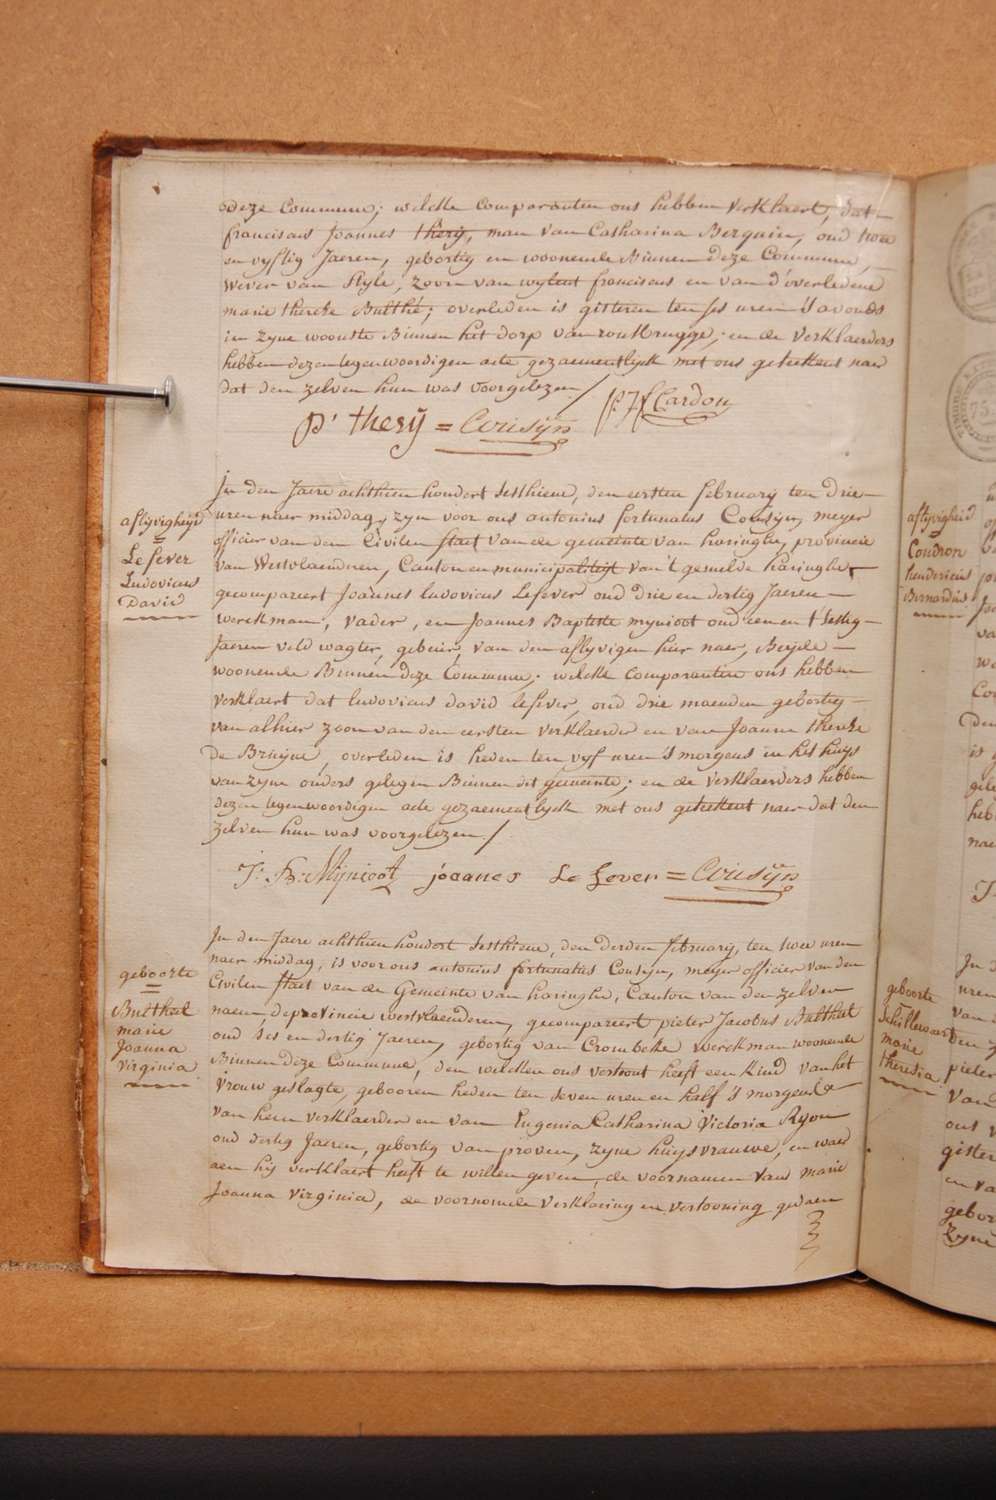 deze Commune; welcke comparanten ons hebben verklaert, dat
franciscus Joannes thery, man van Catharina Berquin, oud twee
en vyftig Jaeren, gebortig en woonende Binnen deze Commune,
wever van Style, zoon van wylent franciscus en van d'overledene
marie therese Bulthé; overleden is gisteren ten ses uren s'avonds
in zyne woonste Binnen het dorp van rousbrugge; en de verklaerders
hebben dezen tegenwoordigen acte gezaementlyck met ons geteekent naer
dat den zelven hun was voorgelezen /
p' therij = Cousijn p. J. Cardon
aflyvigheyd
=
Lefever
Ludovicus
David
In den Jaere achthien hondert sesthiene, den eersten february ten drie
uren naer middag, zyn voor ons antonius fortunatus Cousyn, meyer
officier van den Civilen staet van de gemeinte van haringhe, provincie
van Westvlaenderen, Canton en municipaliteyt van 't gemelde haringhe
gecompareert Joannes ludovicus Lefever oud drie en dertig Jaeren
werckman, vader, en Joannes Baptiste mynioot oud een en t'sestig
Jaeren veld wagter, gebeur, van den aflyvigen hier naer, Beyde
woonende Binnen deze Commune; welcke comparanten ons hebben
verklaert dat ludovicus david lefever, oud drie maenden gebortig
van alhier zoon van den eersten verklaerder en van Joanna therese
De Bruyne, overleden is heden ten vyf uren 's morgens in het huys
van zyne ouders gelegen Binnen dit gemeinte; en de verklaerders hebben
dezen tegenwoordigen acte gezaementlyck met ons geteekent naer dat den
zelven hun was voorgelezen /
J: B: Mijnioot joanes Le fever = Cousijn
geboorte
=
Bulthel
marie
Joanna
virginia
In den Jaere achthien hondert sesthiene, den derden february, ten twee uren
naer middag, is voor ons antonius fortunatus Cousyn, meyer officier van den
Civilen staet van de Gemeinte van haringhe, Canton van den zelven
naem, de provincie westvlaenderen, gecompareert pieter Jacobus Bulthel
oud ses en dertig Jaeren, gebortig van Crombeke werckman woonende
Binnen deze Commune, den welcken ons vertoont heeft een kind van het
vrouw geslagte, gebooren heden ten seven uren en half 's morgens
van hem verklaerder en van Eugenia Catharina Victoria Ryon
oud dertig Jaeren, gebortig van proven, zyne huysvrauwe, en waer
aen hij verklaert heeft te willen geven, de voornamen van marie
Joanna virginia, de voornoemde verklaring en vertooning gedaen
aflyvigheid
Coudron
hendericus
Bernardus
geboorte
Schillewaert
marie
theresia